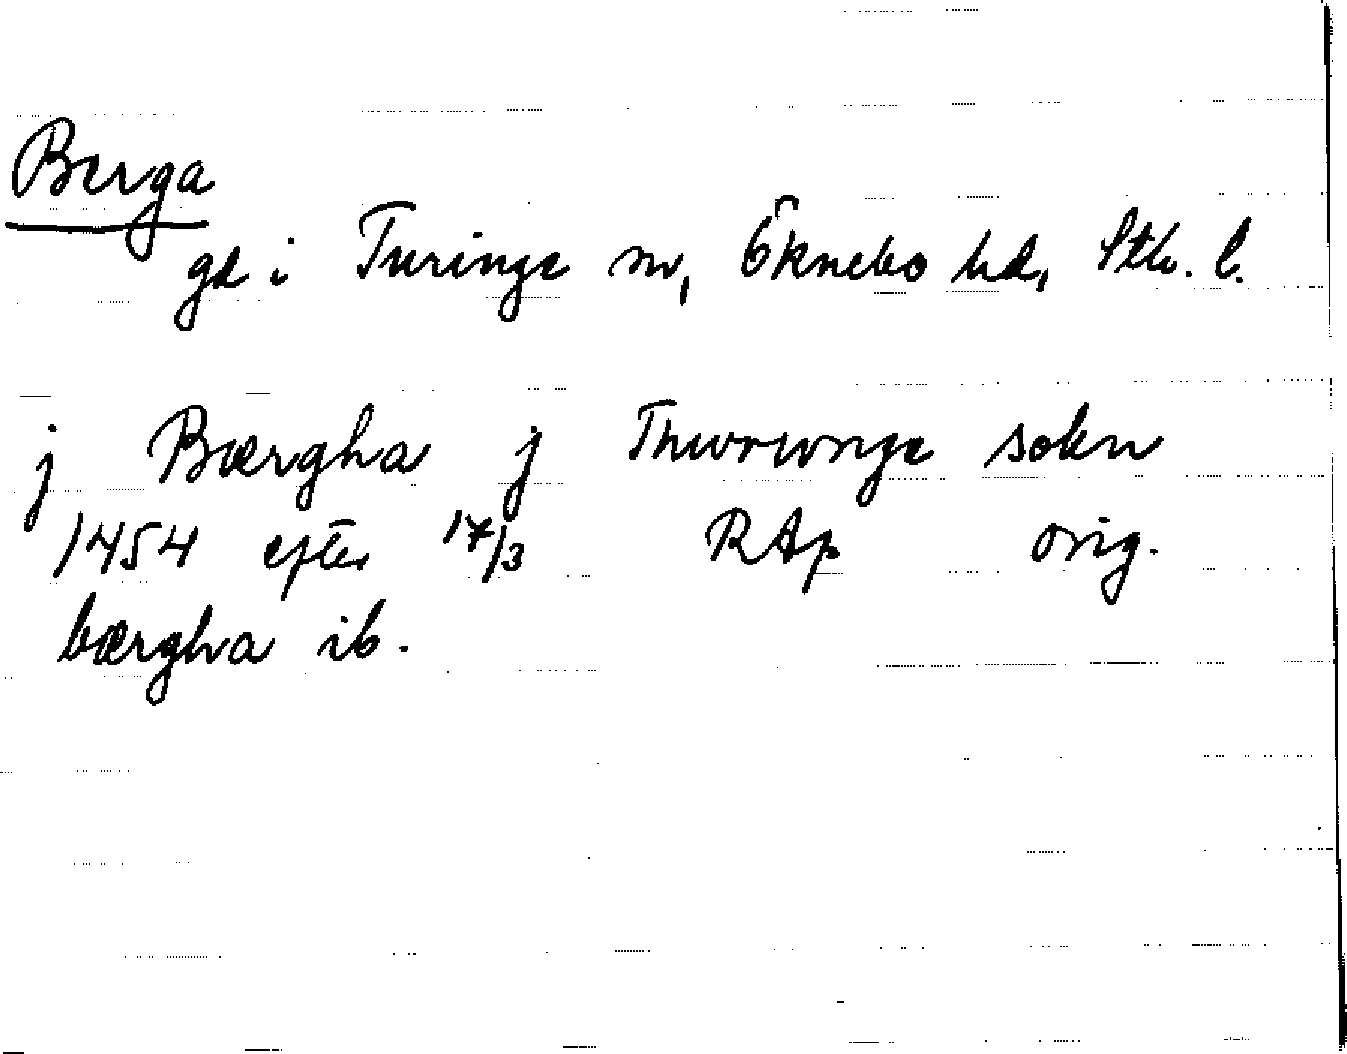 Berga
gd i Turinge sn, Öknebo hd, Sth. l.
j Bærgha j Thwrwnge sokn
1454 efter 17/3 RAp orig.
bærgha ib.